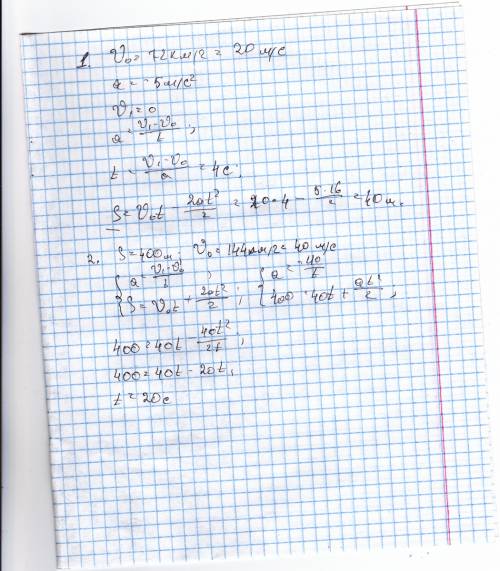 1. V₀ = 72 км/г = 20 м/с
a = -5 м/с²
V₁ = 0
a = (V₁ - V₀)/t ;
t = (V₁ - V₀)/a = 4 с ;
S = V₀t - 20t²/2 = 20·4 - 5·16/2 = 40 м.
2. S = 400 м ; V₀ = 144 км/г = 40 м/с
{ a = (V₁ - V₀)/t ; { a = -40/t
{ S = V₀t + 20t²/2 ; { 400 = 40t + at²/2 ;
400 = 40t - 40t²/2t ;
400 = 40t - 20t ;
t = 20 с